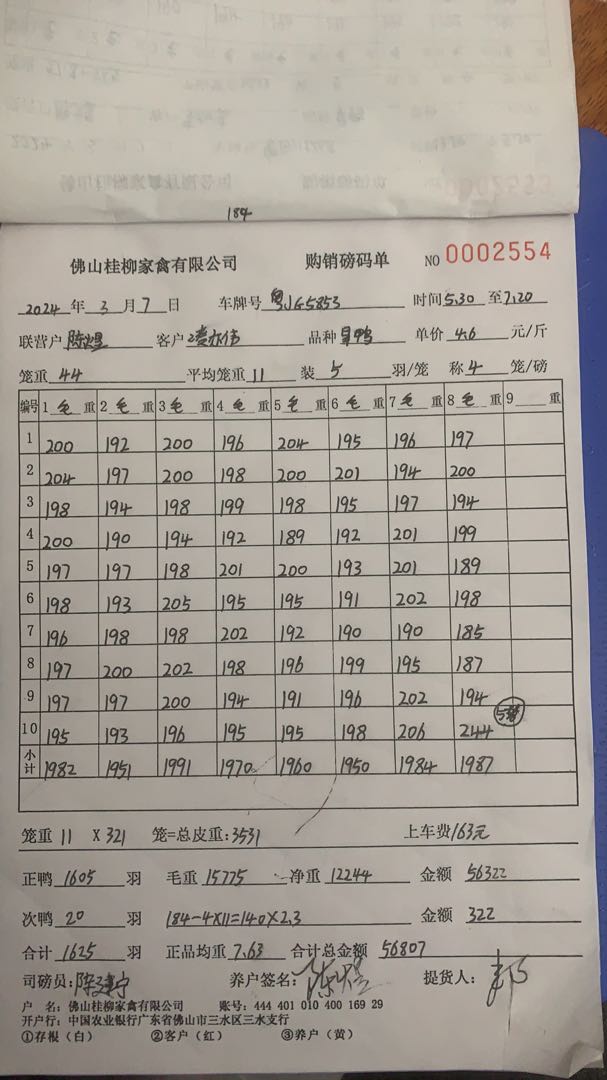 184
佛山桂柳家禽有限公司 购销磅码单 NO 0002554
2024 年 3 月 7 日 车牌号 粤JG5853 时间 5.30 至 7.20
联营户 陈煜 客户 凌亦伟 品种 旱鸭 单价 4.6 元/斤
笼重 44 平均笼重 11 装 5 羽/笼 称 4 笼/磅
编号 1 毛 重 2 毛 重 3 毛 重 4 毛 重 5 毛 重 6 毛 重 7 毛 重 8 毛 重 9 重
1 200 192 200 196 204 195 196 197
2 204 197 200 198 200 201 194 200
3 198 194 198 199 198 195 197 194
4 200 190 194 192 189 192 201 199
5 197 197 198 201 200 193 201 189
6 198 193 205 195 195 191 202 198
7 196 198 198 202 192 190 190 185
8 197 200 202 198 196 199 195 187
9 197 197 200 194 191 196 202 194
5笼
10 195 193 196 195 195 198 206 244
小计 1982 1951 1991 1970 1960 1950 1984 1987
笼重 11 X 321 笼=总皮重:3531 上车费163元
正鸭 1605 羽 毛重 15775 净重 12244 金额 56322
次鸭 20 羽 184-4X11=140X2.3 金额 322
合计 1625 羽 正品均重 7.63 合计总金额 56807
司磅员: 养户签名: 提货人:
户 名:佛山桂柳家禽有限公司 账号:444 401 010 400 169 29
开户行:中国农业银行广东省佛山市三水区三水支行
①存根(白) ②客户(红) ③养户(黄)